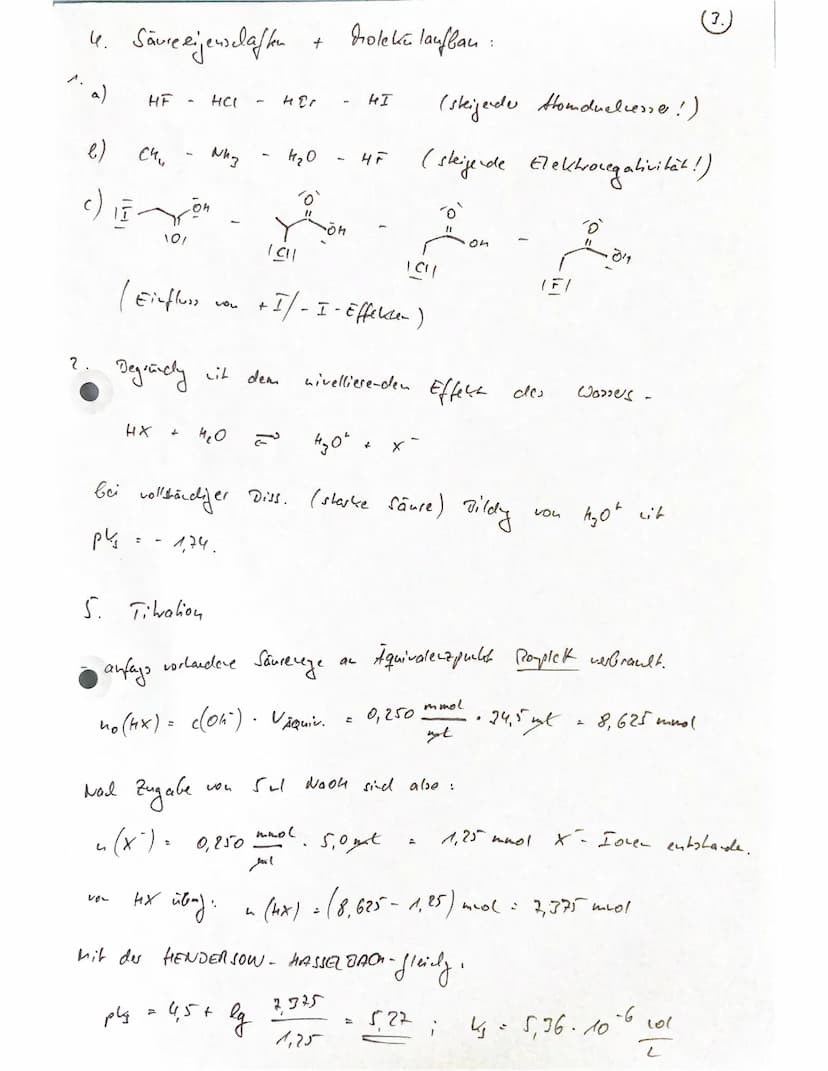 (3.)
4. Säureeigenschaften + Molekülaufbau :
1. a) HF - HCl - HBr - HI (steigender Atomdurchmesser!)
b) CH₄ - NH₃ - H₂O - HF (steigende Elektronegativität!)
c) I OH O - O OH Cl - O OH Cl - O OH F
(Einfluss von +I/-I-Effekten)
2. Begründg mit dem nivellierenden Effekt des Wassers -
HX + H₂O ⇌ H₃O⁺ + X⁻
bei vollständiger Diss. (starke Säure) Bildg von H₃O⁺ mit
pKs = - 1,74.
5. Titration
anfags vorhandene Säuremenge am Äquivalenzpunkt komplett verbraucht.
n₀(HX) = c(OH⁻) · VÄquiv. = 0,250 mmol/ml · 34,5 ml = 8,625 mmol
Nach Zugabe von 5 ml NaOH sind also :
n(X⁻) = 0,250 mmol/ml · 5,0 ml = 1,25 mmol X⁻-Ionen entstanden.
von HX übrig: n(HX) = (8,625 - 1,25) mmol = 7,375 mmol
Mit der HENDERSON-HASSELBACH-Gleichg.
pKs = 4,5 + lg 7,375/1,25 = 5,27 ; Ks = 5,36 · 10⁻⁶ mol/L